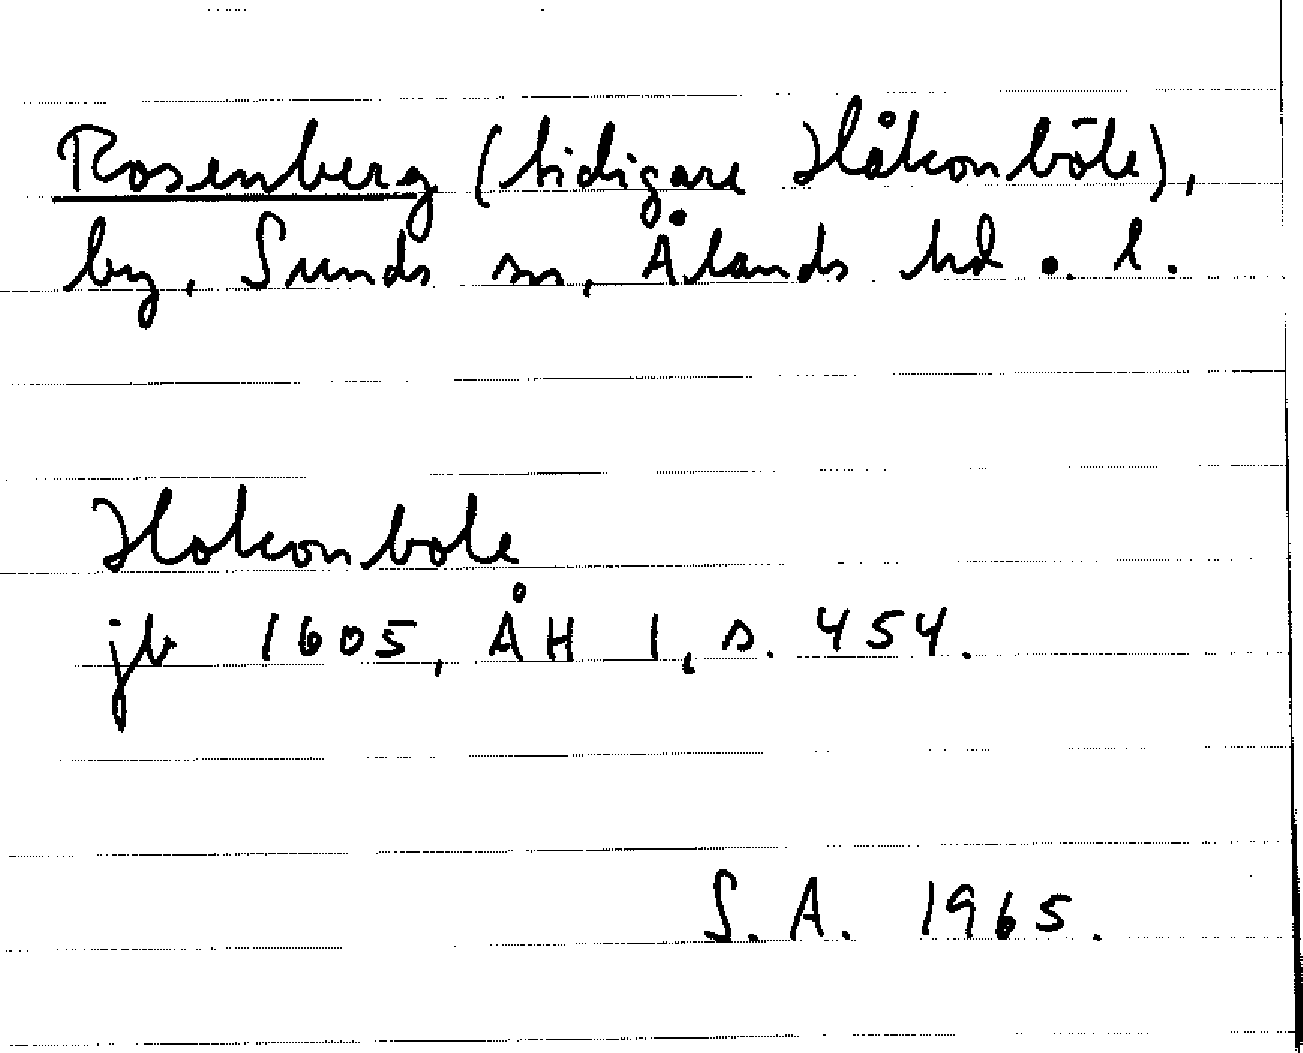 Rosenberg (tidigare Håkonböle),
by, Sunds sn, Ålands hd o. l.
Hokonbole
jb 1605, ÅH 1, s. 454.
S.A. 1965.